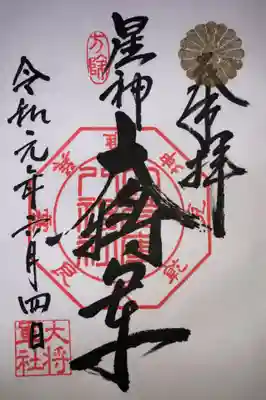 奉拝
方除
星神
大将軍
令和元年六月四日
大将軍社